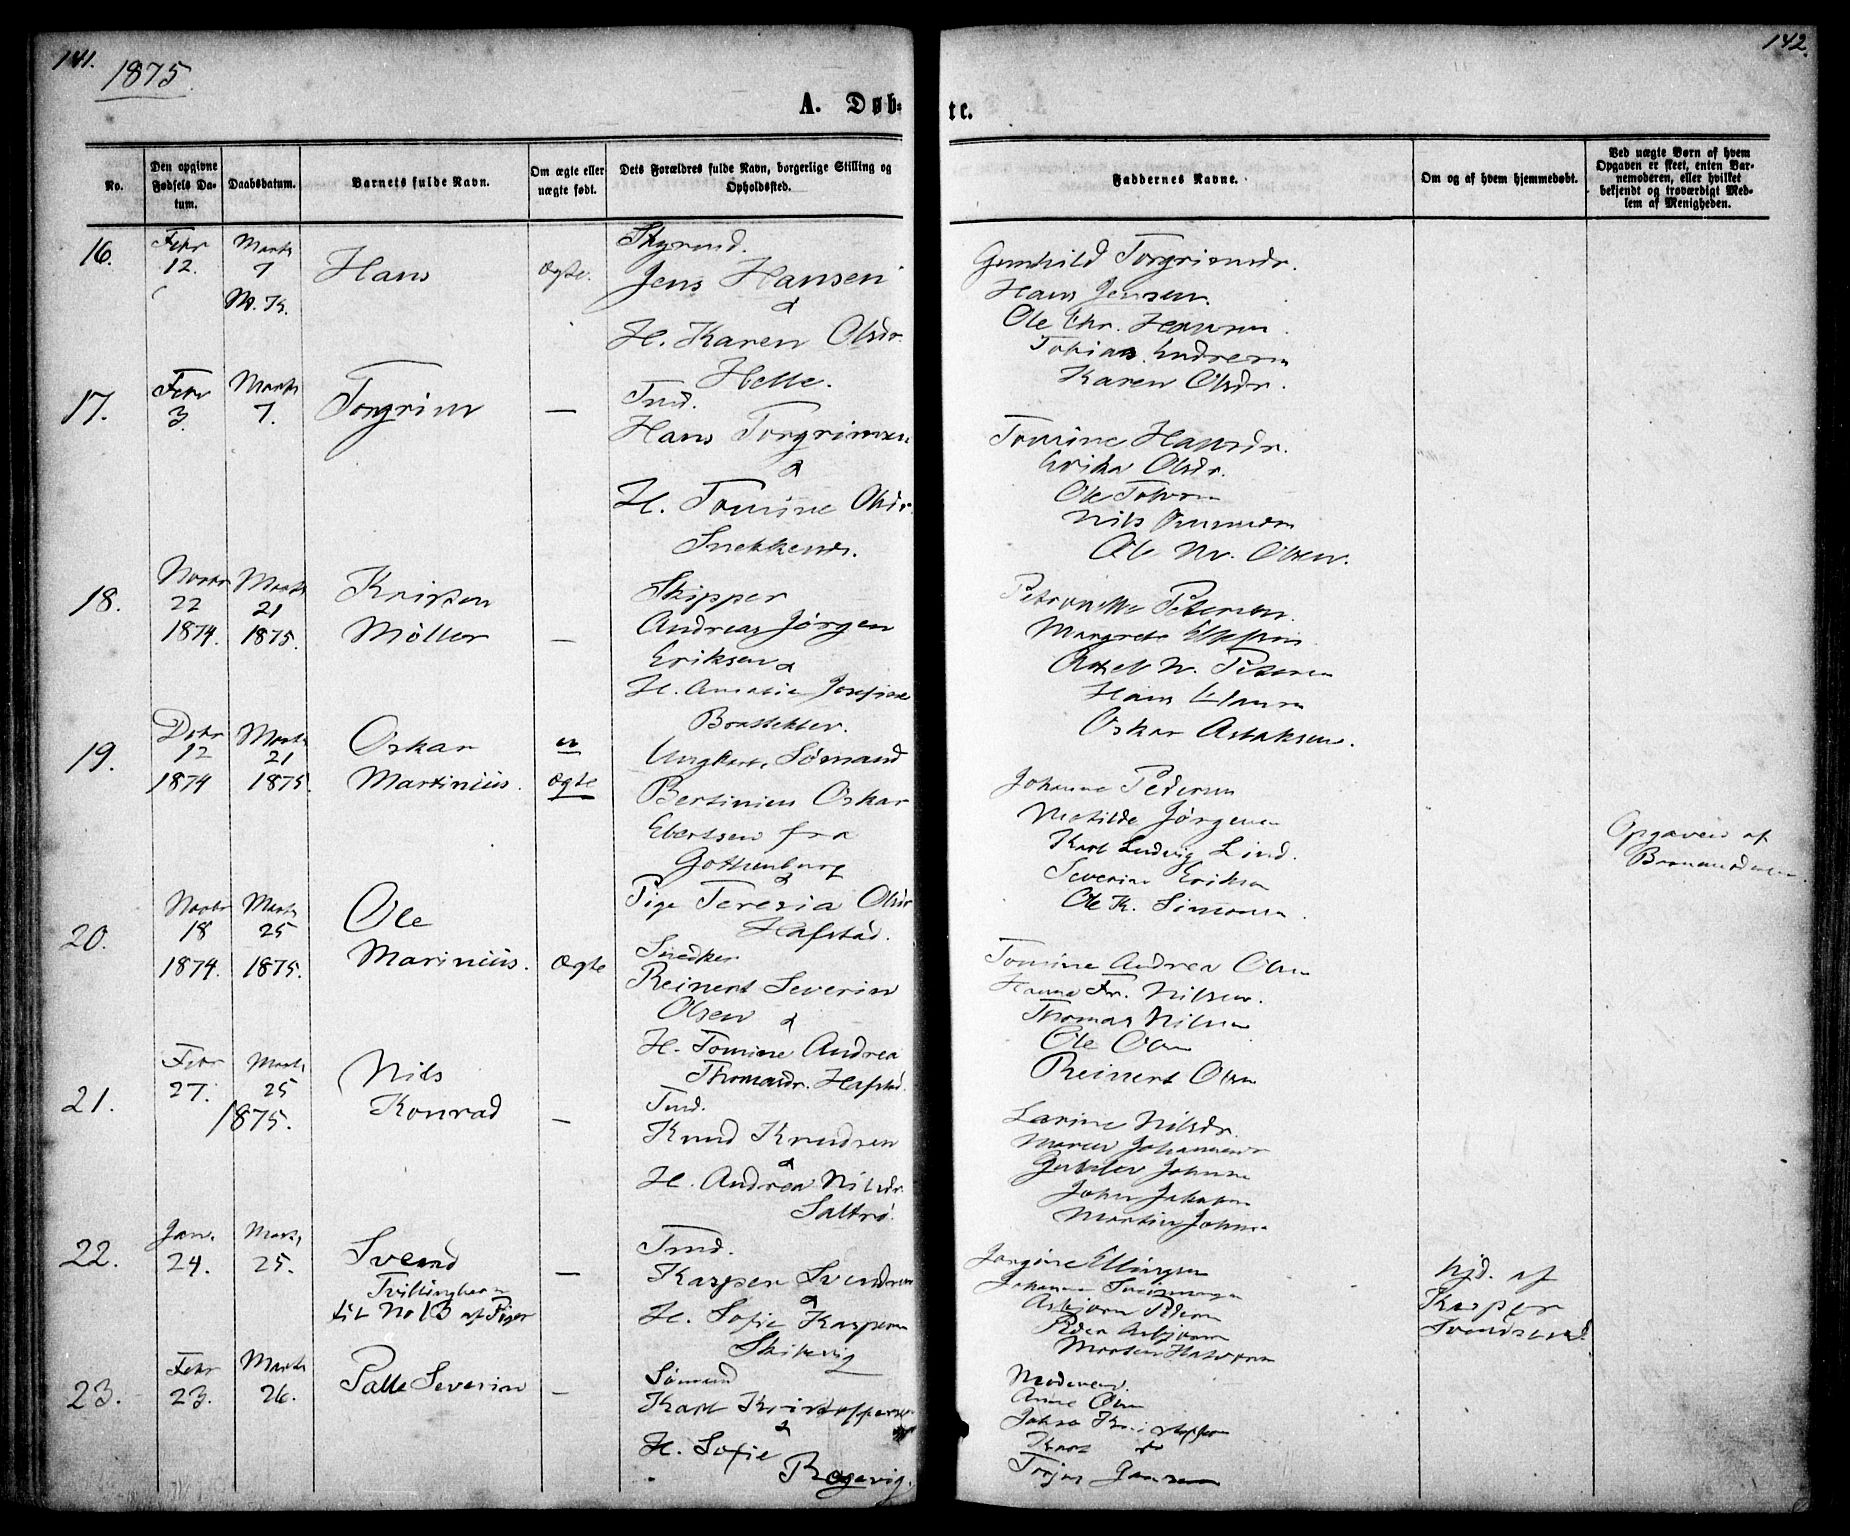 141.
1875.
142.
A. Døb-
te.
No.
Den opgivne Fødsels Da-
tum.
Daabsdatum.
Barnets fulde Navn.
Om ægte eller
uægte født.
Dets Forældres fulde Navn, borgerlige Stilling og
Opholdssted.
Faddernes Navne.
Om og af hvem hjemmedøbt.
Ved uægte Børn af hvem
Opgaven er skeet, enten Bar-
nemoderen, eller hvilket
bekjendt og troværdigt Med-
lem af Menigheden.
16.
Febr
12.
Marts
7
M. K.
Hans
Ægte.
Styrmd.
Jens Hansen
&
H. Karen Olsdr.
Helle.
Gunhild Torgrimsdr.
Hans Jensen.
Ole Chr. Hansen
Tobias Endresen
Karen Olsdr.
17.
Febr
3.
Marts
7.
Torgrim
—
Tmd.
Hans Torgrimsen
&
H. Tomine Olsdr.
Snekkenes.
Tomine Hansdr.
Erika Olsdr.
Ole
Nils
Ole Olsen.
18.
Novbr
22
1874.
Marts
21
1875.
Kristen
Møller
—
Skipper
Andreas Jørgen
Eriksen &
H. Amalie Josefine
Petronelle Petersen.
Margrete
Axel Petersen
Hans
Oskar Aslaksen.
19.
Debr
12
1874
Marts
21
1875.
Oskar
Martinius.
u
ægte
Ungkarl, Sømand
Bertinius Oskar
Ebertsen fra
Gothenburg
&
Pige Teresia Olsdr
Hafstad.
Johanne Pedersen
Matilde Jørgensen
Karl Ludvig Lind.
Severine Eriksen
Ole K. Simonsen.
Opgaven af
Barnemoderen.
20.
Novbr
18
1874.
Marts
25
1875.
Ole
Marinius.
Ægte
Snedker
Reinert Severin
Olsen &
H. Tomine Andrea
Thomasdr. Hafstad.
Tomine Andrea Olsen
Hanna Fr. Nilsen.
Thomas Nilsen
Ole Olsen
Reinert Olsen
21.
Febr
27.
Marts
25
1875.
Nils
Konrad
—
Tmd.
Knud Knudsen
&
H. Andrea Nilsdr.
Saltrø.
Larine Nilsdr.
Maren Johannesdr
Johnsen
John Jakobsen
Martin Johnsen
22.
Jan.
24.
Marts
25.
Svend
Tvillingbarn
til No 13 af Piger
—
Tmd.
Kasper Svendsen
&
H. Sofie Kaspersen
Skibevig
Jørgine Ellingsen
Johanne
Asbjørn Pedersen
Peder Asbjørnsen
Morten Halvorsen
hjd. af
Kasper
Svendsen.
23.
Febr
23.
Marts
26.
Palle Severin
—
Sømand
Karl Kristoffersen
&
H. Sofie
Ragevig.
Moderen.
Anne Olsen
Jakob Kristoffersen
Karl do
Terjus Gunsen